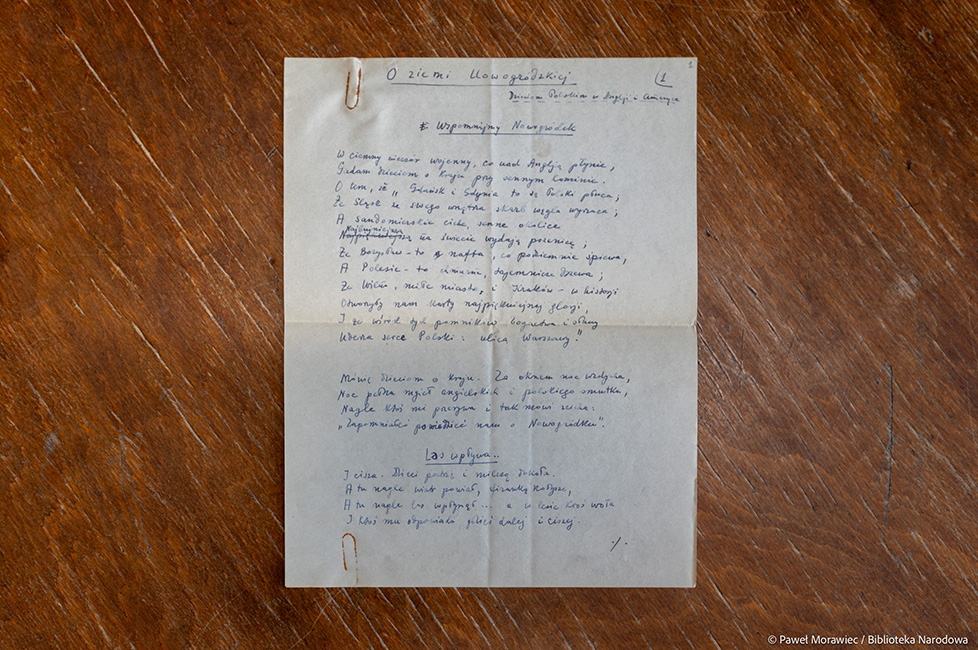 1
O ziemi Nowogródzkiej (1
Dzieciom Polskim w Anglji i Ameryce
Wspomnijmy Nowogródek
W ciemny wieczór wojenny, co nad Anglją płynie,
Gadam dzieciom o Kraju przy sennym kominie.
O tem, że „Gdańsk i Gdynia to są Polski płuca;
Że Śląsk ze swego wnętrza skarb węgla wyrzuca;
A sandomierskie ciche, senne okolice
na świecie wydają pszenicę;
Że Borysław - to nafta, co podziemnie śpiewa,
A Polesie - to cmurna, tajemnicze drzewa;
Że Wilno, miłe miasto, i Kraków - w historji
Otworzyły nam karty najpiękniejszej glorji,
I że wśród tych pomników bogactwa i sławy
Uderza serce Polski: ulica Warszawy."
Mówię dzieciom o Kraju. Za oknem noc wzdycha,
Noc pełna mgieł angielskich i polskiego smutku,
Nagle ktoś mi przerywa i tak mówi zcicha:
„Zapomniałeś powiedzieć nam o Nowogródku".
Las wpływa..
I cisza. Dzieci patrzą i milczą dokoła.
A tu nagle wiatr powiał, firanką kołysze,
A tu nagle las wpłynął... a w lesie ktoś woła
I ktoś mu odpowiada gdzieś dalej i ciszej.
./.
© Paweł Morawiec / Biblioteka Narodowa